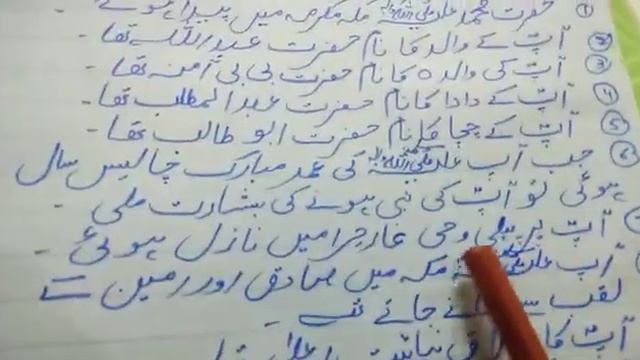 حضرت محمد ﷺ مکہ مکرمہ میں پیدا ہوئے
② آپ کے والد کا نام حضرت عبداللہ تھا -
③ آپ کی والدہ کا نام حضرت بی بی آمنہ تھا -
④ آپ کے دادا کا نام حضرت عبدالمطلب تھا -
⑤ آپ کے چچا کا نام حضرت ابو طالب تھا -
⑥ جب آپ ﷺ کی عمر مبارک چالیس سال
ہوئی تو آپ کی نبی ہونے کی بشارت ملی -
آپ پر پہلی وحی غار حرا میں نازل ہوئی -
آپ مکہ میں صادق اور زمین کے
لقب سے جانے جاتے تھے -
آپ کا